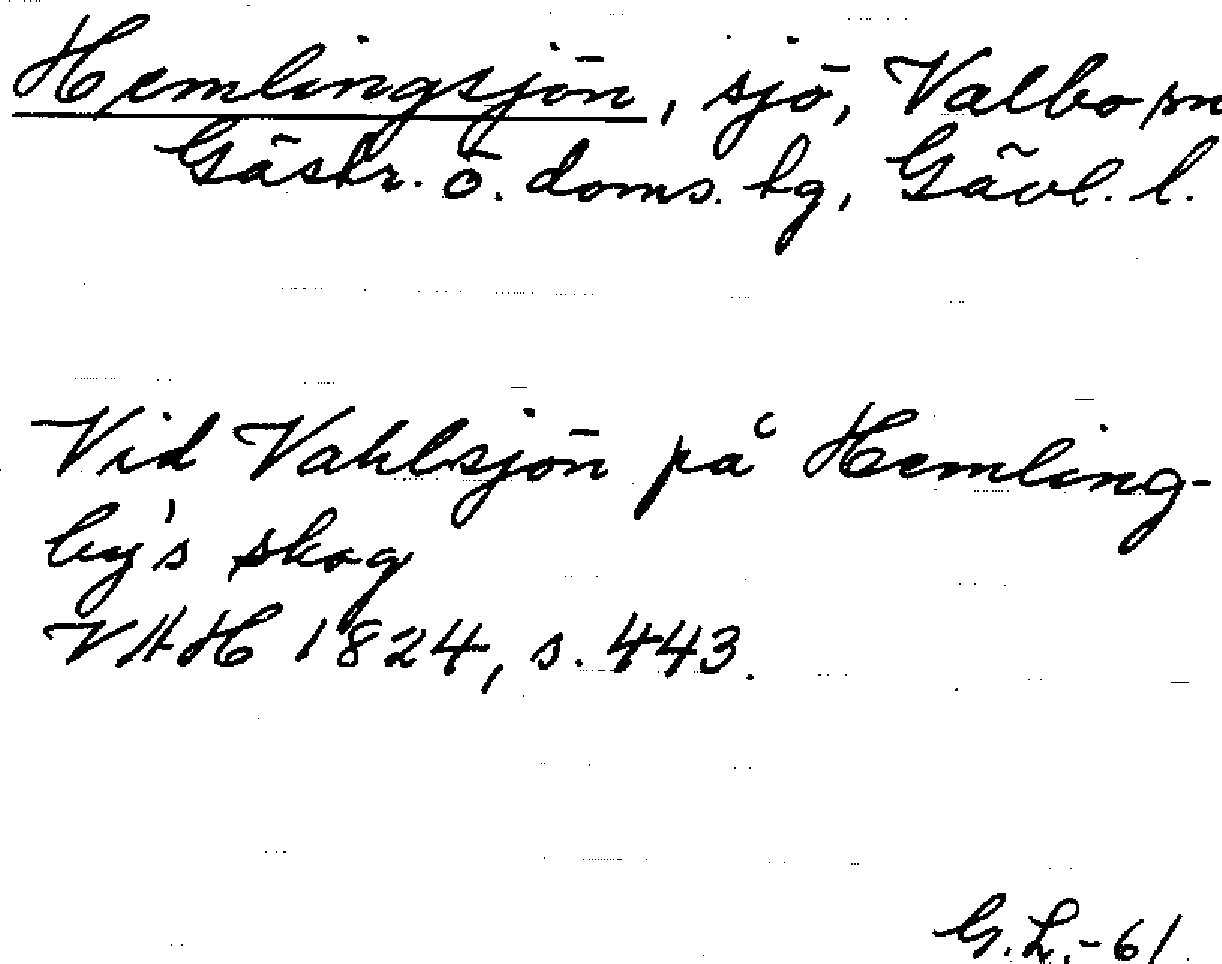 Hemlingsjön, sjö, Valbo sn
Gästr. ö. doms. hg, Gävl. l.
Vid Vahlsjön på Hemling-
by's skog
VAH 1824, s. 443.
G.L.-61